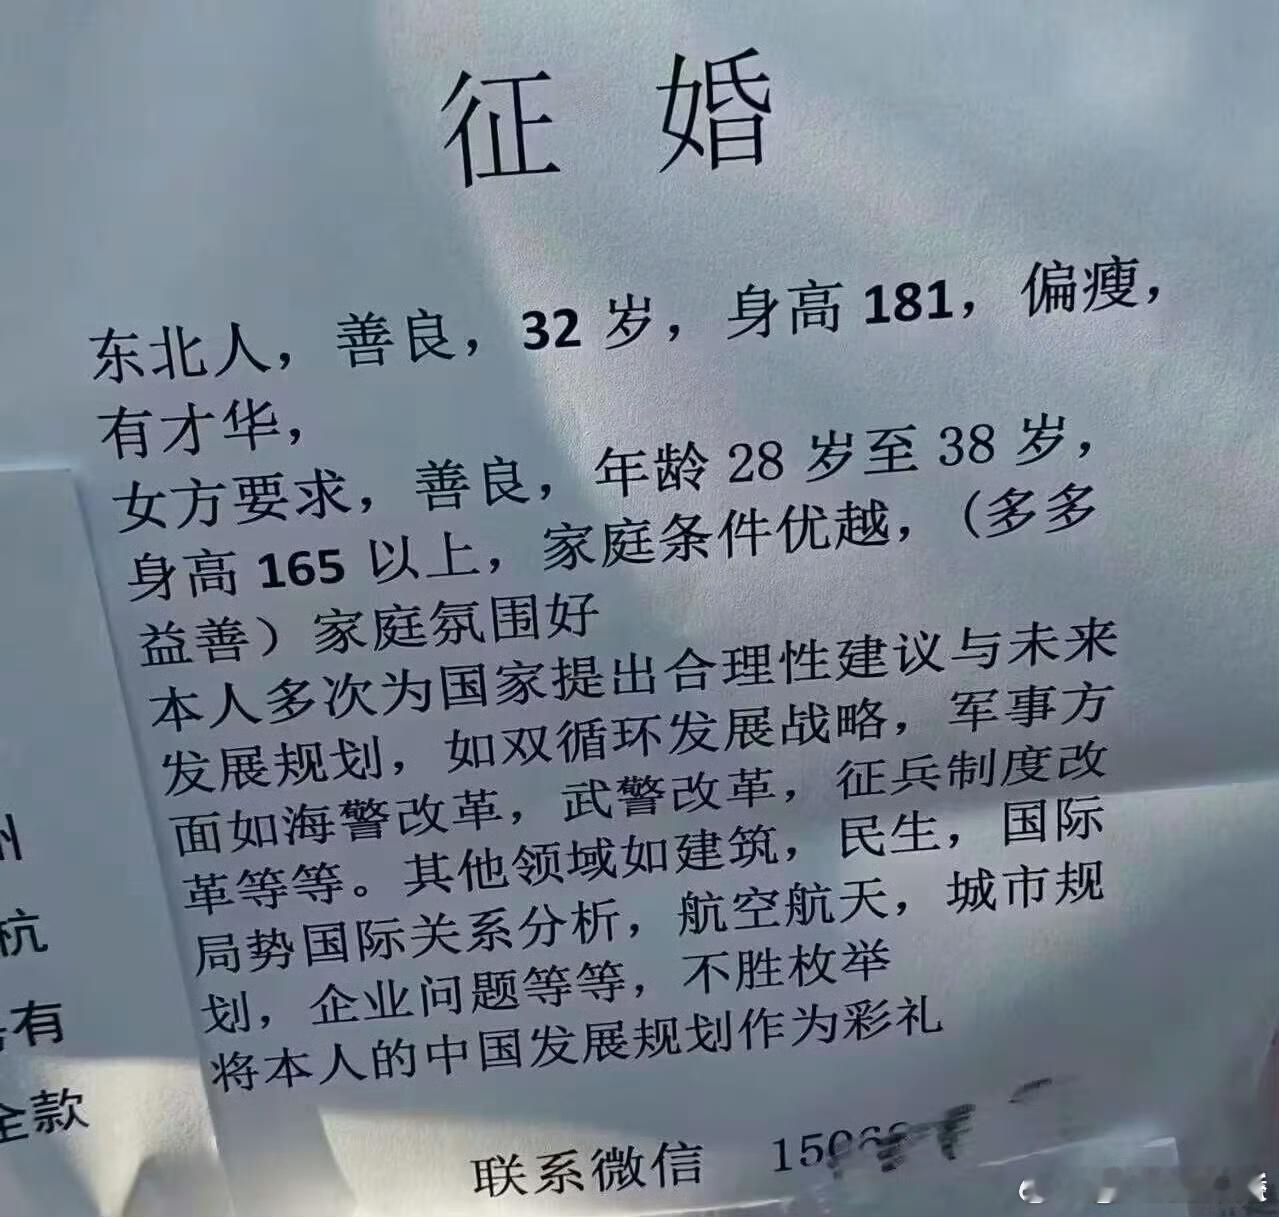 征婚
东北人，善良，32岁，身高181，偏瘦，
有才华，
女方要求，善良，年龄28岁至38岁，
身高165以上，家庭条件优越，（多多
益善）家庭氛围好
本人多次为国家提出合理性建议与未来
发展规划，如双循环发展战略，军事方
面如海警改革，武警改革，征兵制度改
革等等。其他领域如建筑，民生，国际
局势国际关系分析，航空航天，城市规
划，企业问题等等，不胜枚举
将本人的中国发展规划作为彩礼
联系微信 1506
杭
有
全款